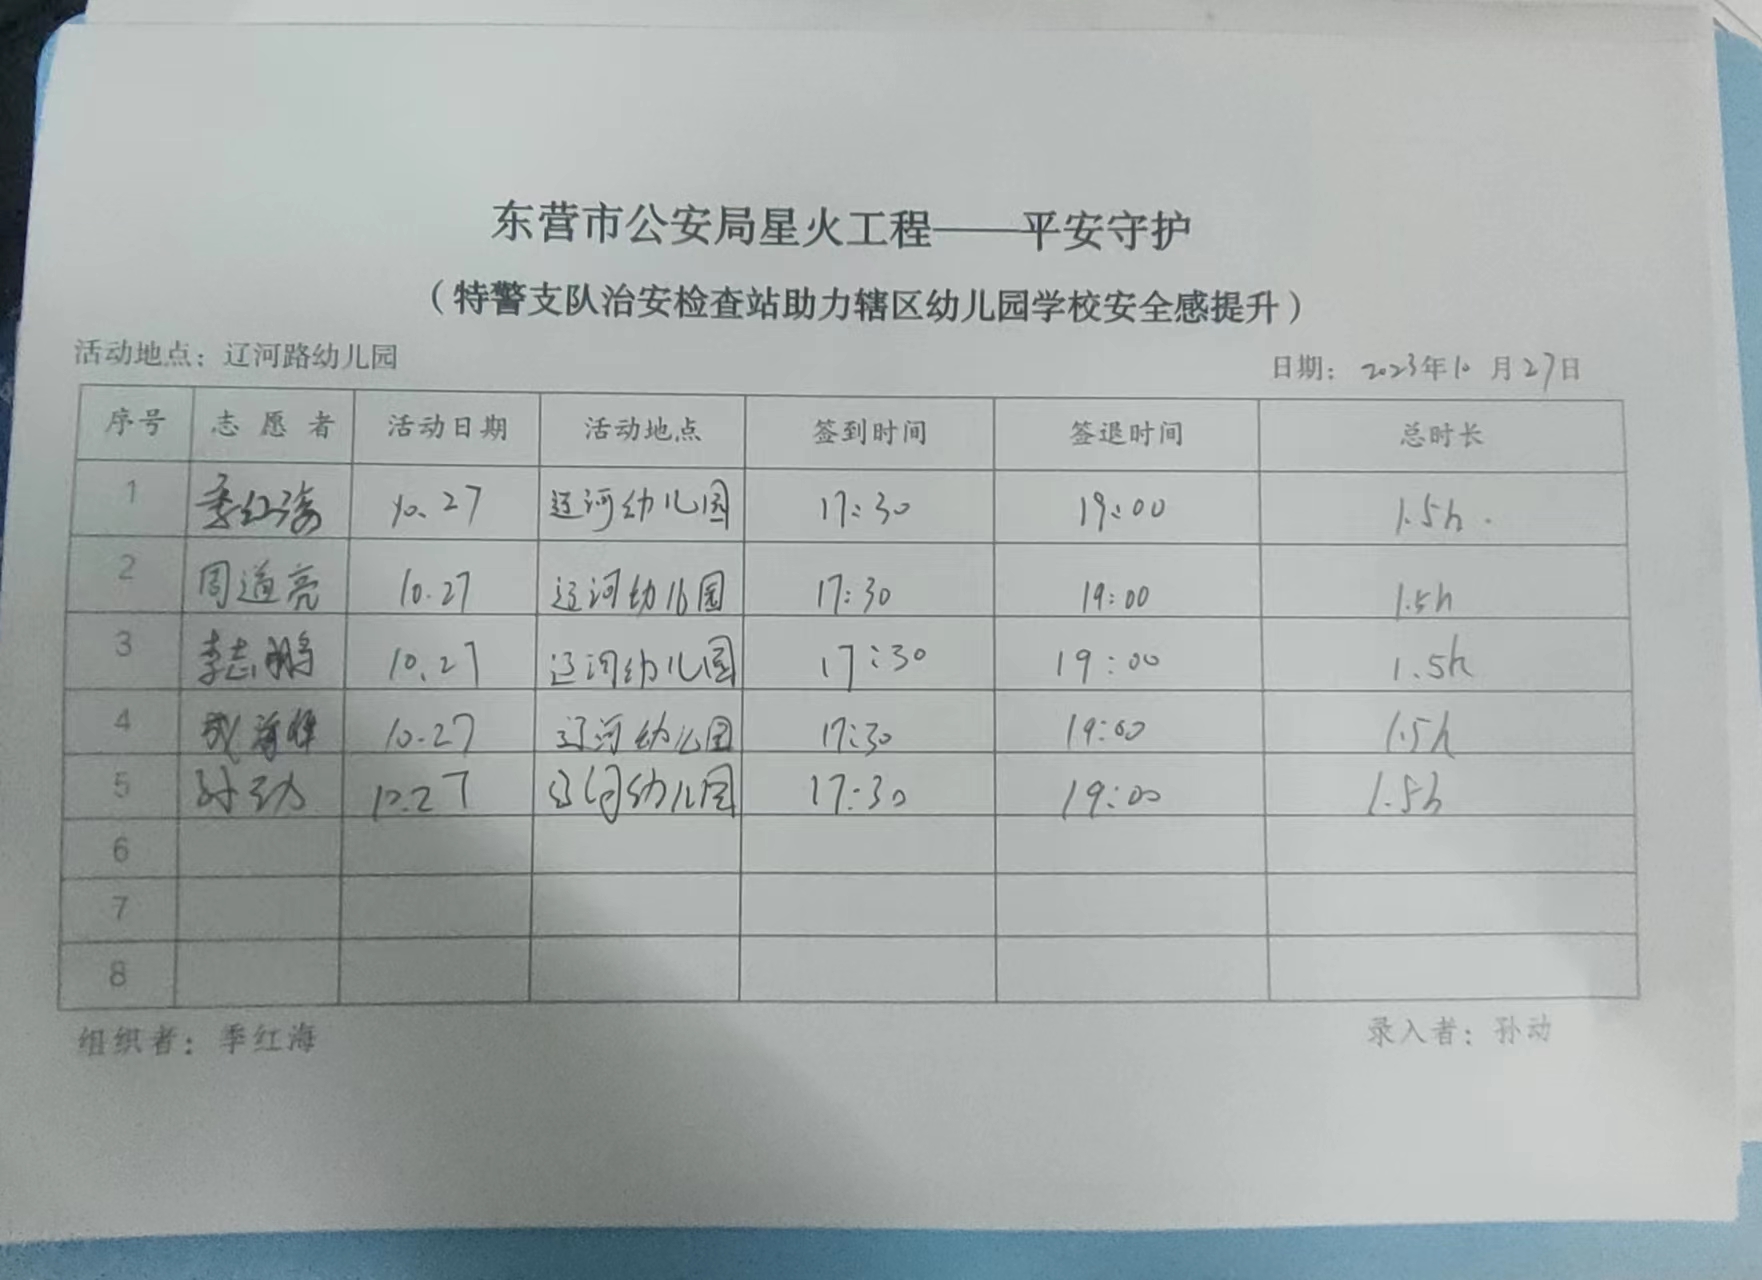 东营市公安局星火工程——平安守护
（特警支队治安检查站助力辖区幼儿园学校安全感提升）
活动地点：辽河路幼儿园 日期：2023年10月27日
序号 志愿者 活动日期 活动地点 签到时间 签退时间 总时长
1 季红海 10.27 辽河幼儿园 17:30 19:00 1.5h.
2 周道亮 10.27 辽河幼儿园 17:30 19:00 1.5h
3 李志鹏 10.27 辽河幼儿园 17:30 19:00 1.5h
4 10.27 辽河幼儿园 17:30 19:00 1.5h
5 孙动 10.27 辽河幼儿园 17:30 19:00 1.5h
6
7
8
组织者：季红海 录入者：孙动